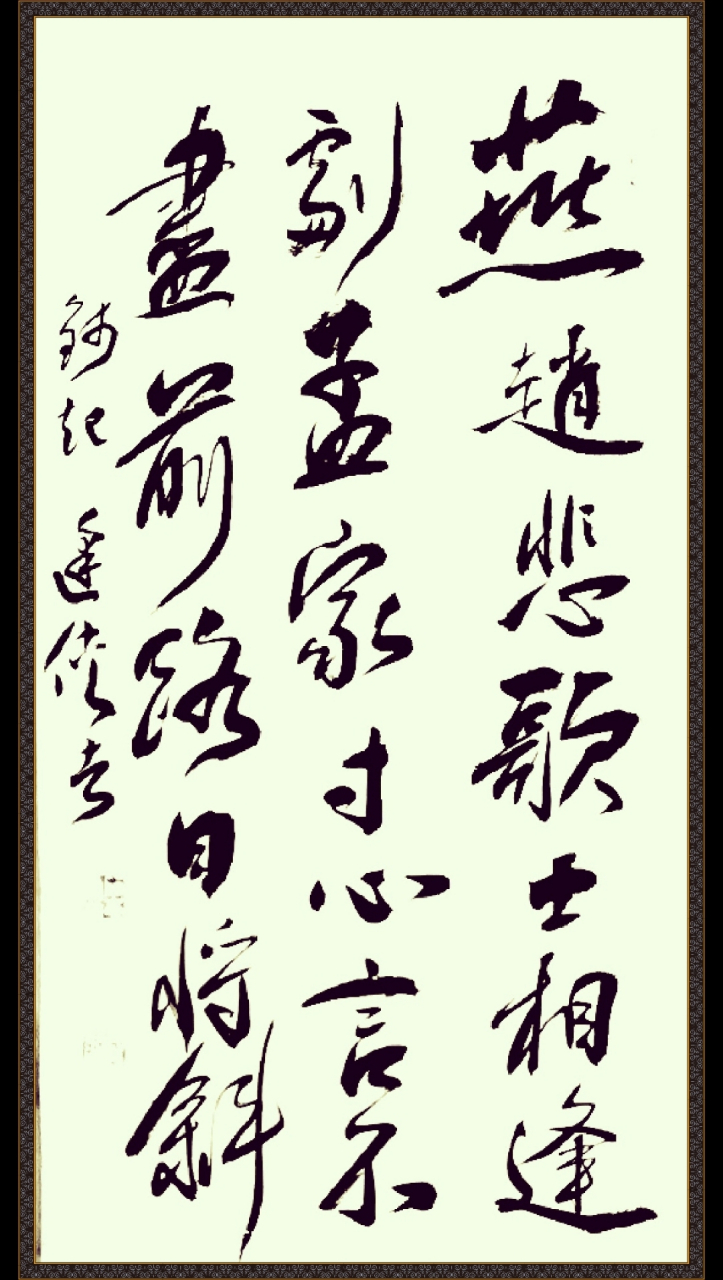 燕趙悲歌士相逢
劇孟家寸心言不
盡前路日將斜
錢起逢俠者